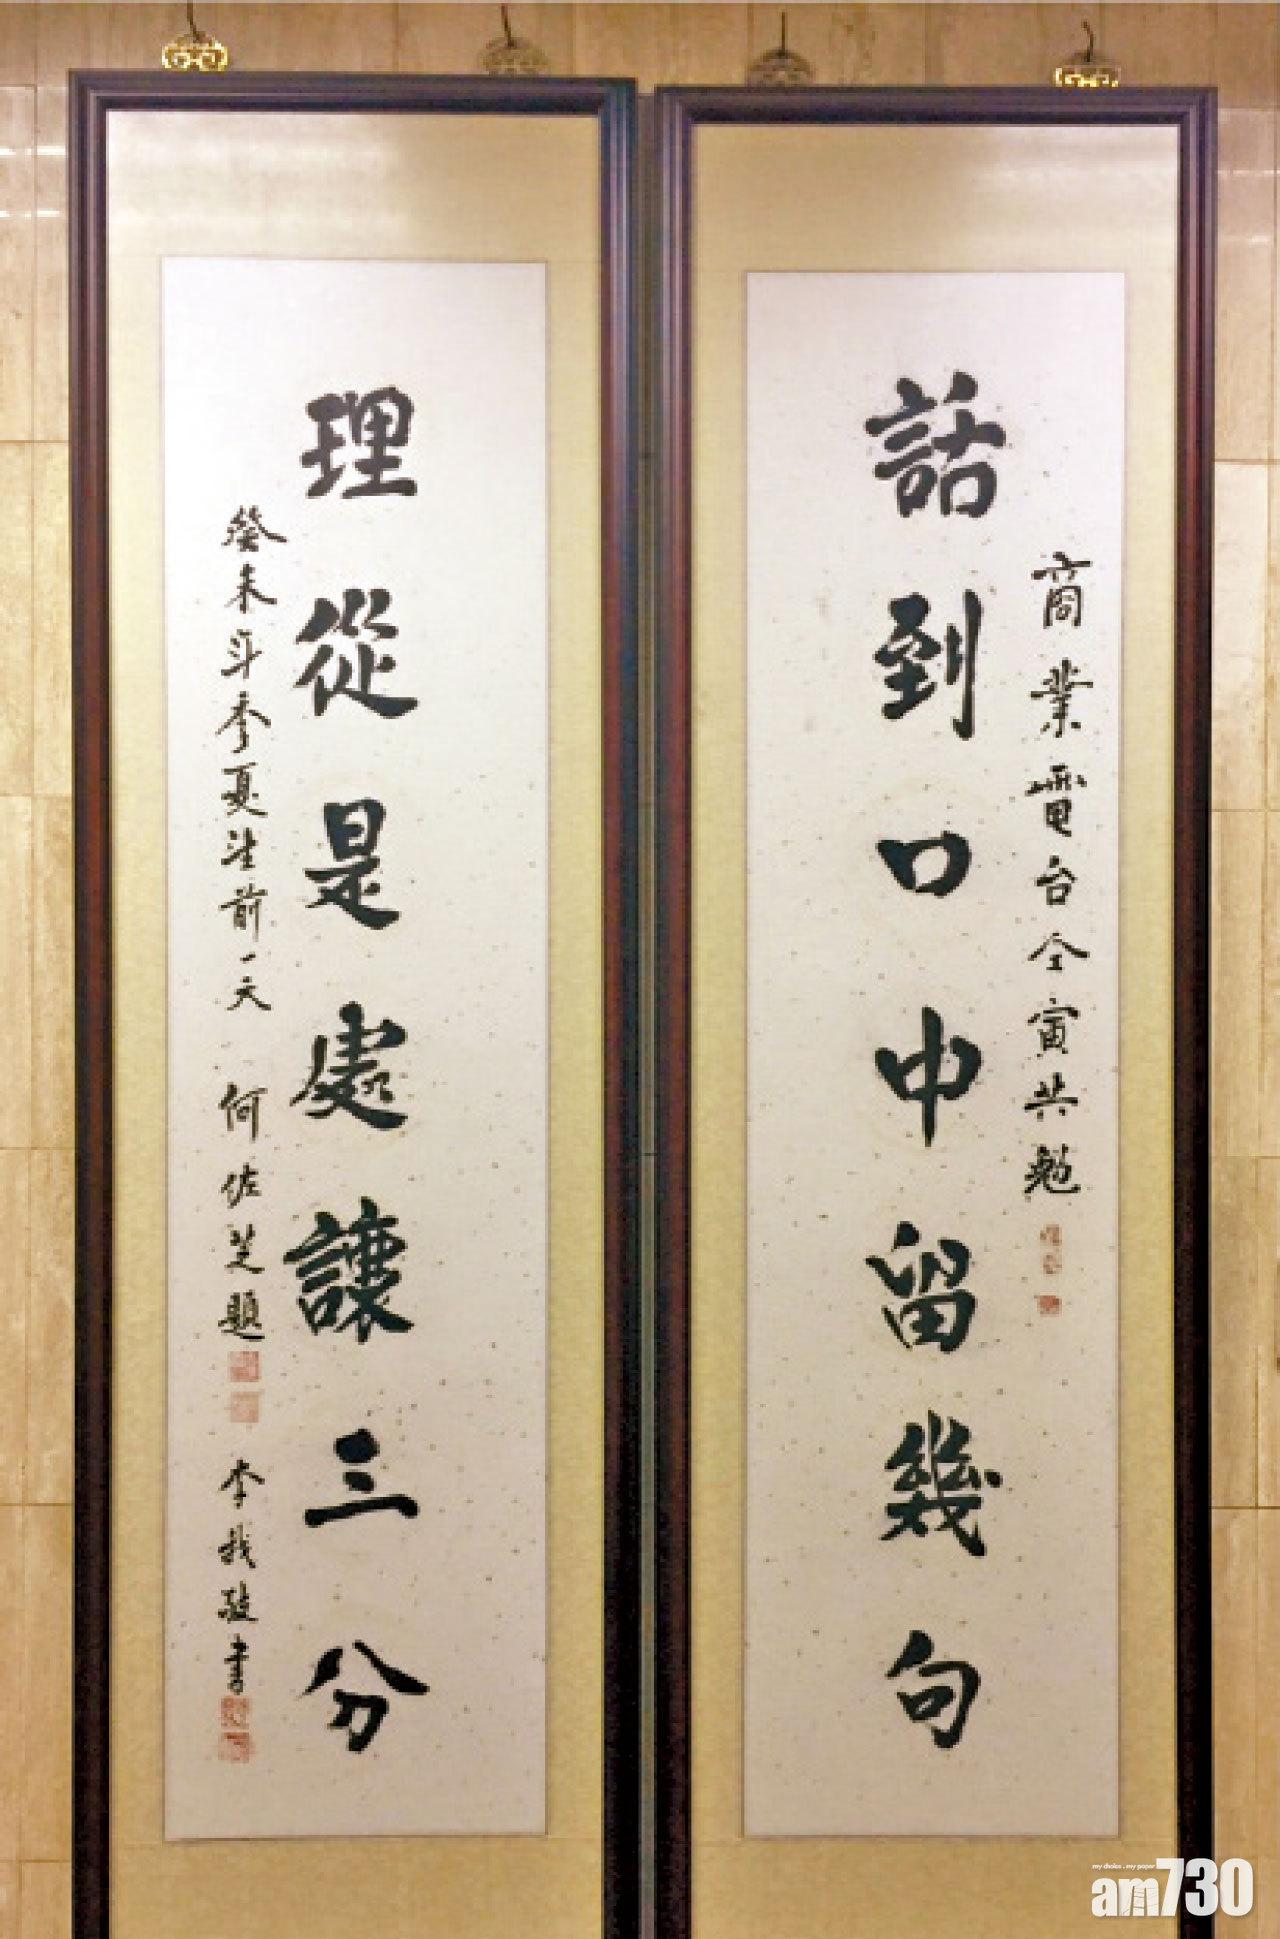 商業電台仝寅共勉
話到口中留幾句
理從是處讓三分
癸未年季夏望前一天 何佐芝題
李我敬書
my choice . my paper
am730